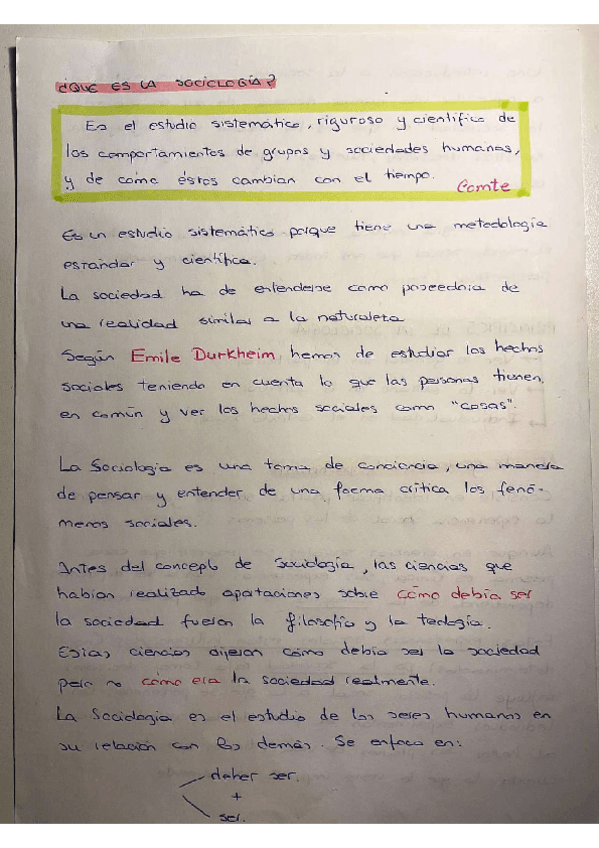 ¿QUE ES LA SOCIOLOGÍA?
Es el estudio sistemático, riguroso y científico de
los comportamientos de grupos y sociedades humanas,
y de como éstos cambian con el tiempo.
Comte
Es un estudio sistemático porque tiene una metodología
estandar y científica.
La sociedad ha de entenderse como poseedora de
una realidad similar a la naturaleza
Según Emile Durkheim, hemos de estudiar los hechos
sociales teniendo en cuenta lo que las personas tienen
en común y ver los hechos sociales como "cosas".
La Sociología es una toma de conciencia, una manera
de pensar y entender de una forma crítica los fenó-
menos sociales.
Antes del concepto de Sociología, las ciencias que
habían realizado aportaciones sobre cómo debía ser
la sociedad fueron la filosofía y la teología.
Estas ciencias dijeron cómo debía ser la sociedad
pero no cómo era la sociedad realmente.
La Sociología es el estudio de los seres humanos en
su relación con los demás. Se enfoca en:
deber ser.
+
ser.